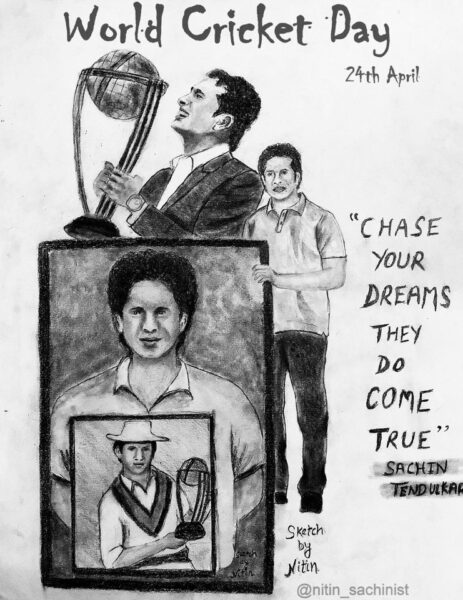 World Cricket Day
24th April
"CHASE
YOUR
DREAMS
THEY
DO
COME
TRUE"
SACHIN
TENDULKAR
Sketch
by
Nitin
Sketch
by
Nitin
@nitin_sachinist